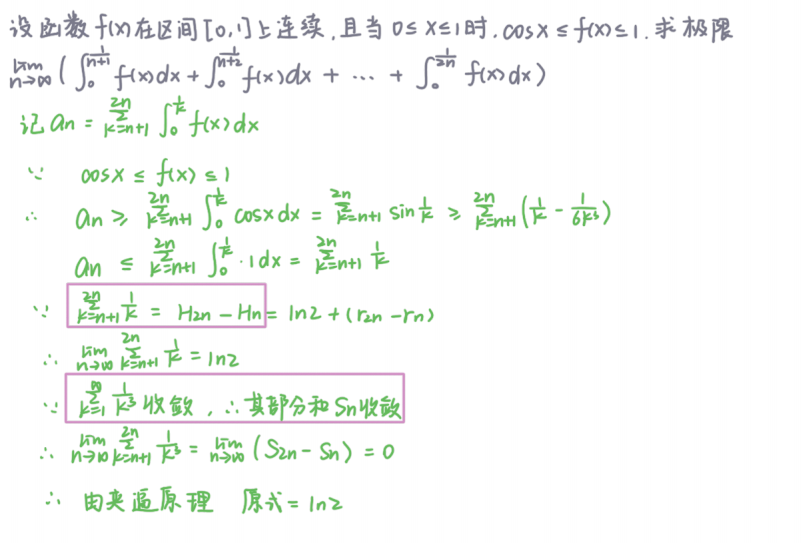 设函数 f(x) 在区间 [0,1] 上连续, 且当 0≤x≤1 时, cosx ≤ f(x) ≤ 1. 求极限
lim_{n→∞} ( ∫_0^{1/(n+1)} f(x)dx + ∫_0^{1/(n+2)} f(x)dx + … + ∫_0^{1/(2n)} f(x)dx )
记 an = Σ_{k=n+1}^{2n} ∫_0^{1/k} f(x)dx
∵ cosx ≤ f(x) ≤ 1
∴ an ≥ Σ_{k=n+1}^{2n} ∫_0^{1/k} cosx dx = Σ_{k=n+1}^{2n} sin 1/k ≥ Σ_{k=n+1}^{2n} ( 1/k - 1/(6k³) )
an ≤ Σ_{k=n+1}^{2n} ∫_0^{1/k} · 1 dx = Σ_{k=n+1}^{2n} 1/k
∵ Σ_{k=n+1}^{2n} 1/k = H2n - Hn = ln2 + (r2n - rn)
∴ lim_{n→∞} Σ_{k=n+1}^{2n} 1/k = ln2
∵ Σ_{k=1}^{∞} 1/k³ 收敛, ∴ 其部分和 Sn 收敛
∴ lim_{n→∞} Σ_{k=n+1}^{2n} 1/k³ = lim_{n→∞} (S2n - Sn) = 0
∴ 由夹逼原理 原式 = ln2